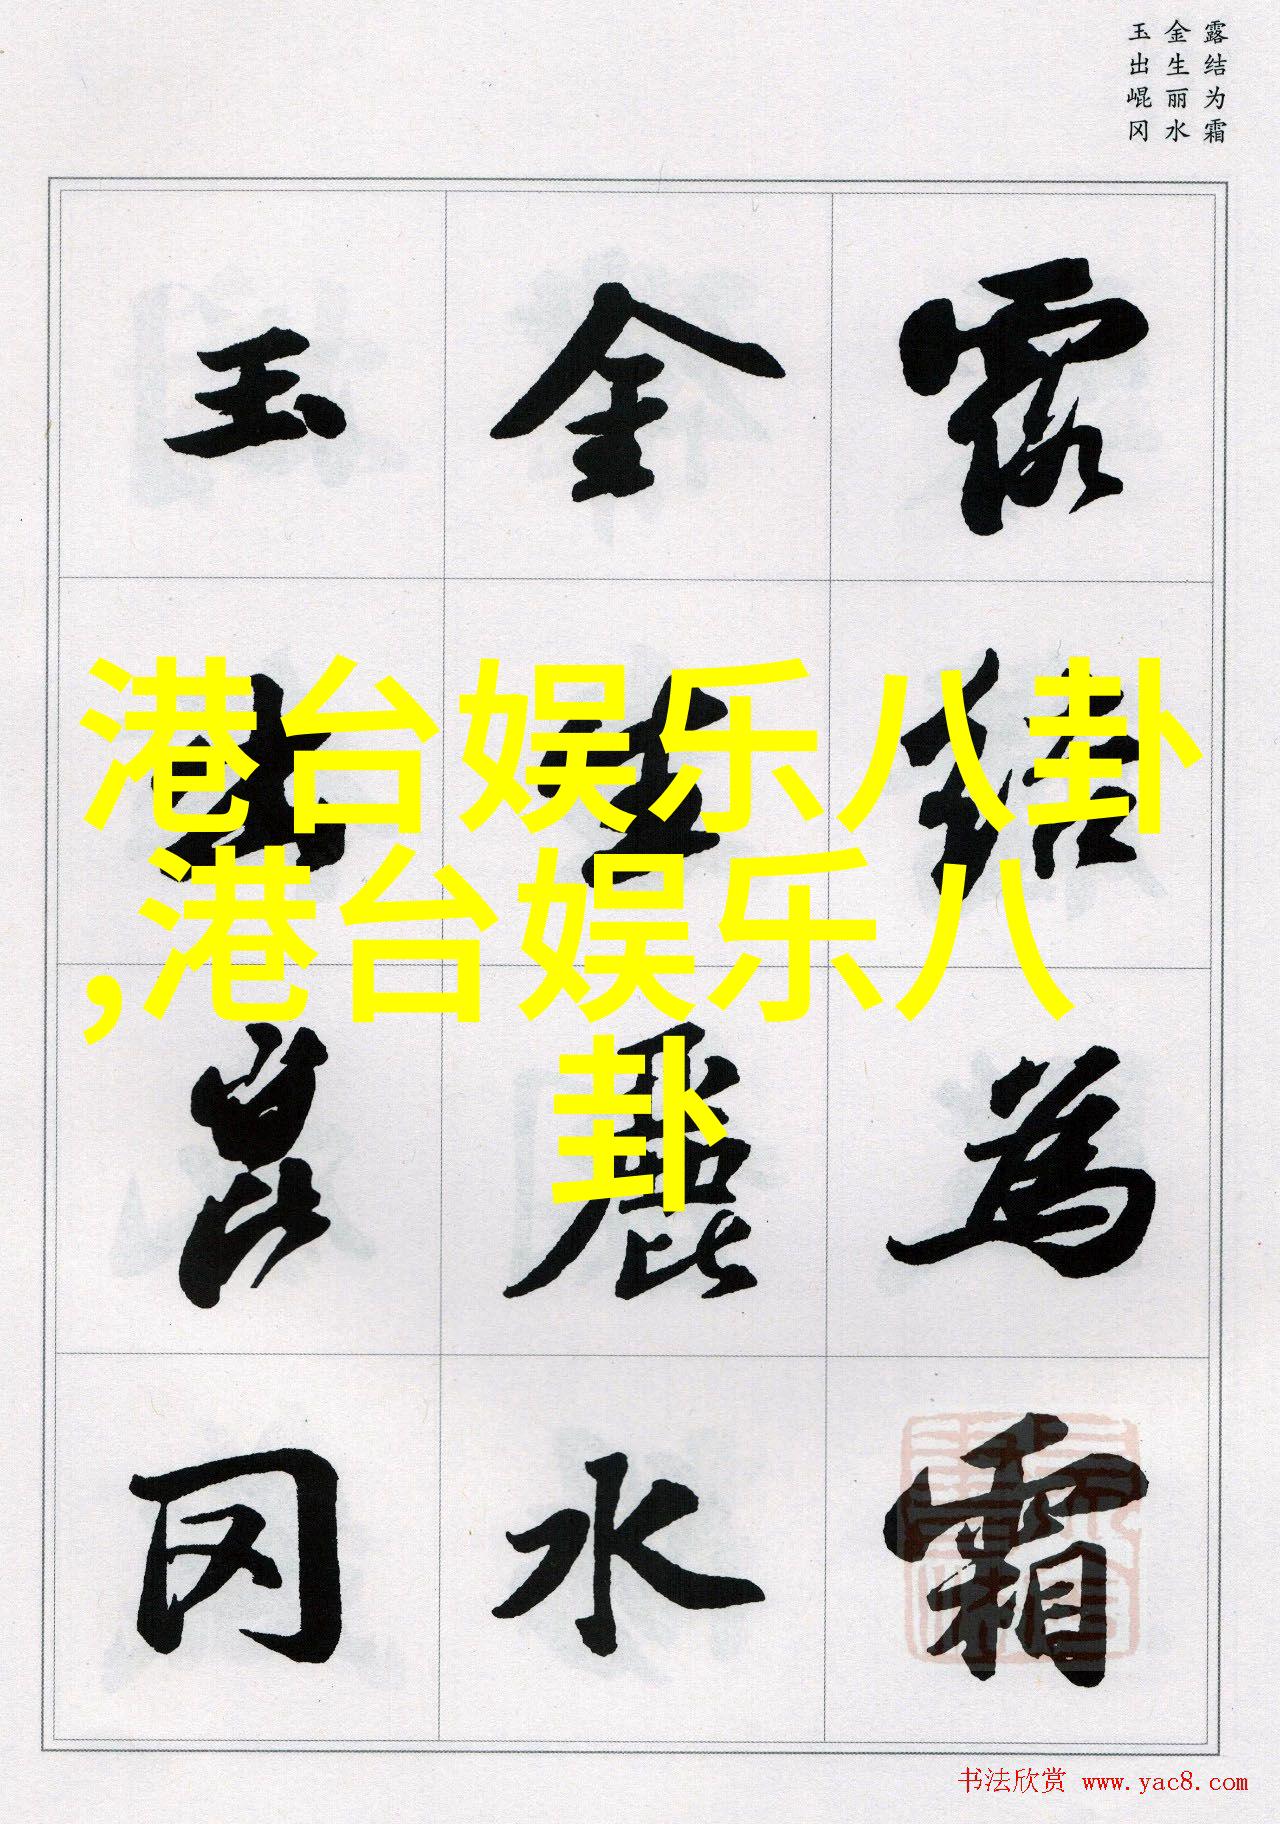 露结为霜
金生丽水
玉出崐冈
露結為霜
金生麗水
玉出崑冈
港台娱乐八卦
,港台娱乐八
卦
书法欣赏 www.yac8.com